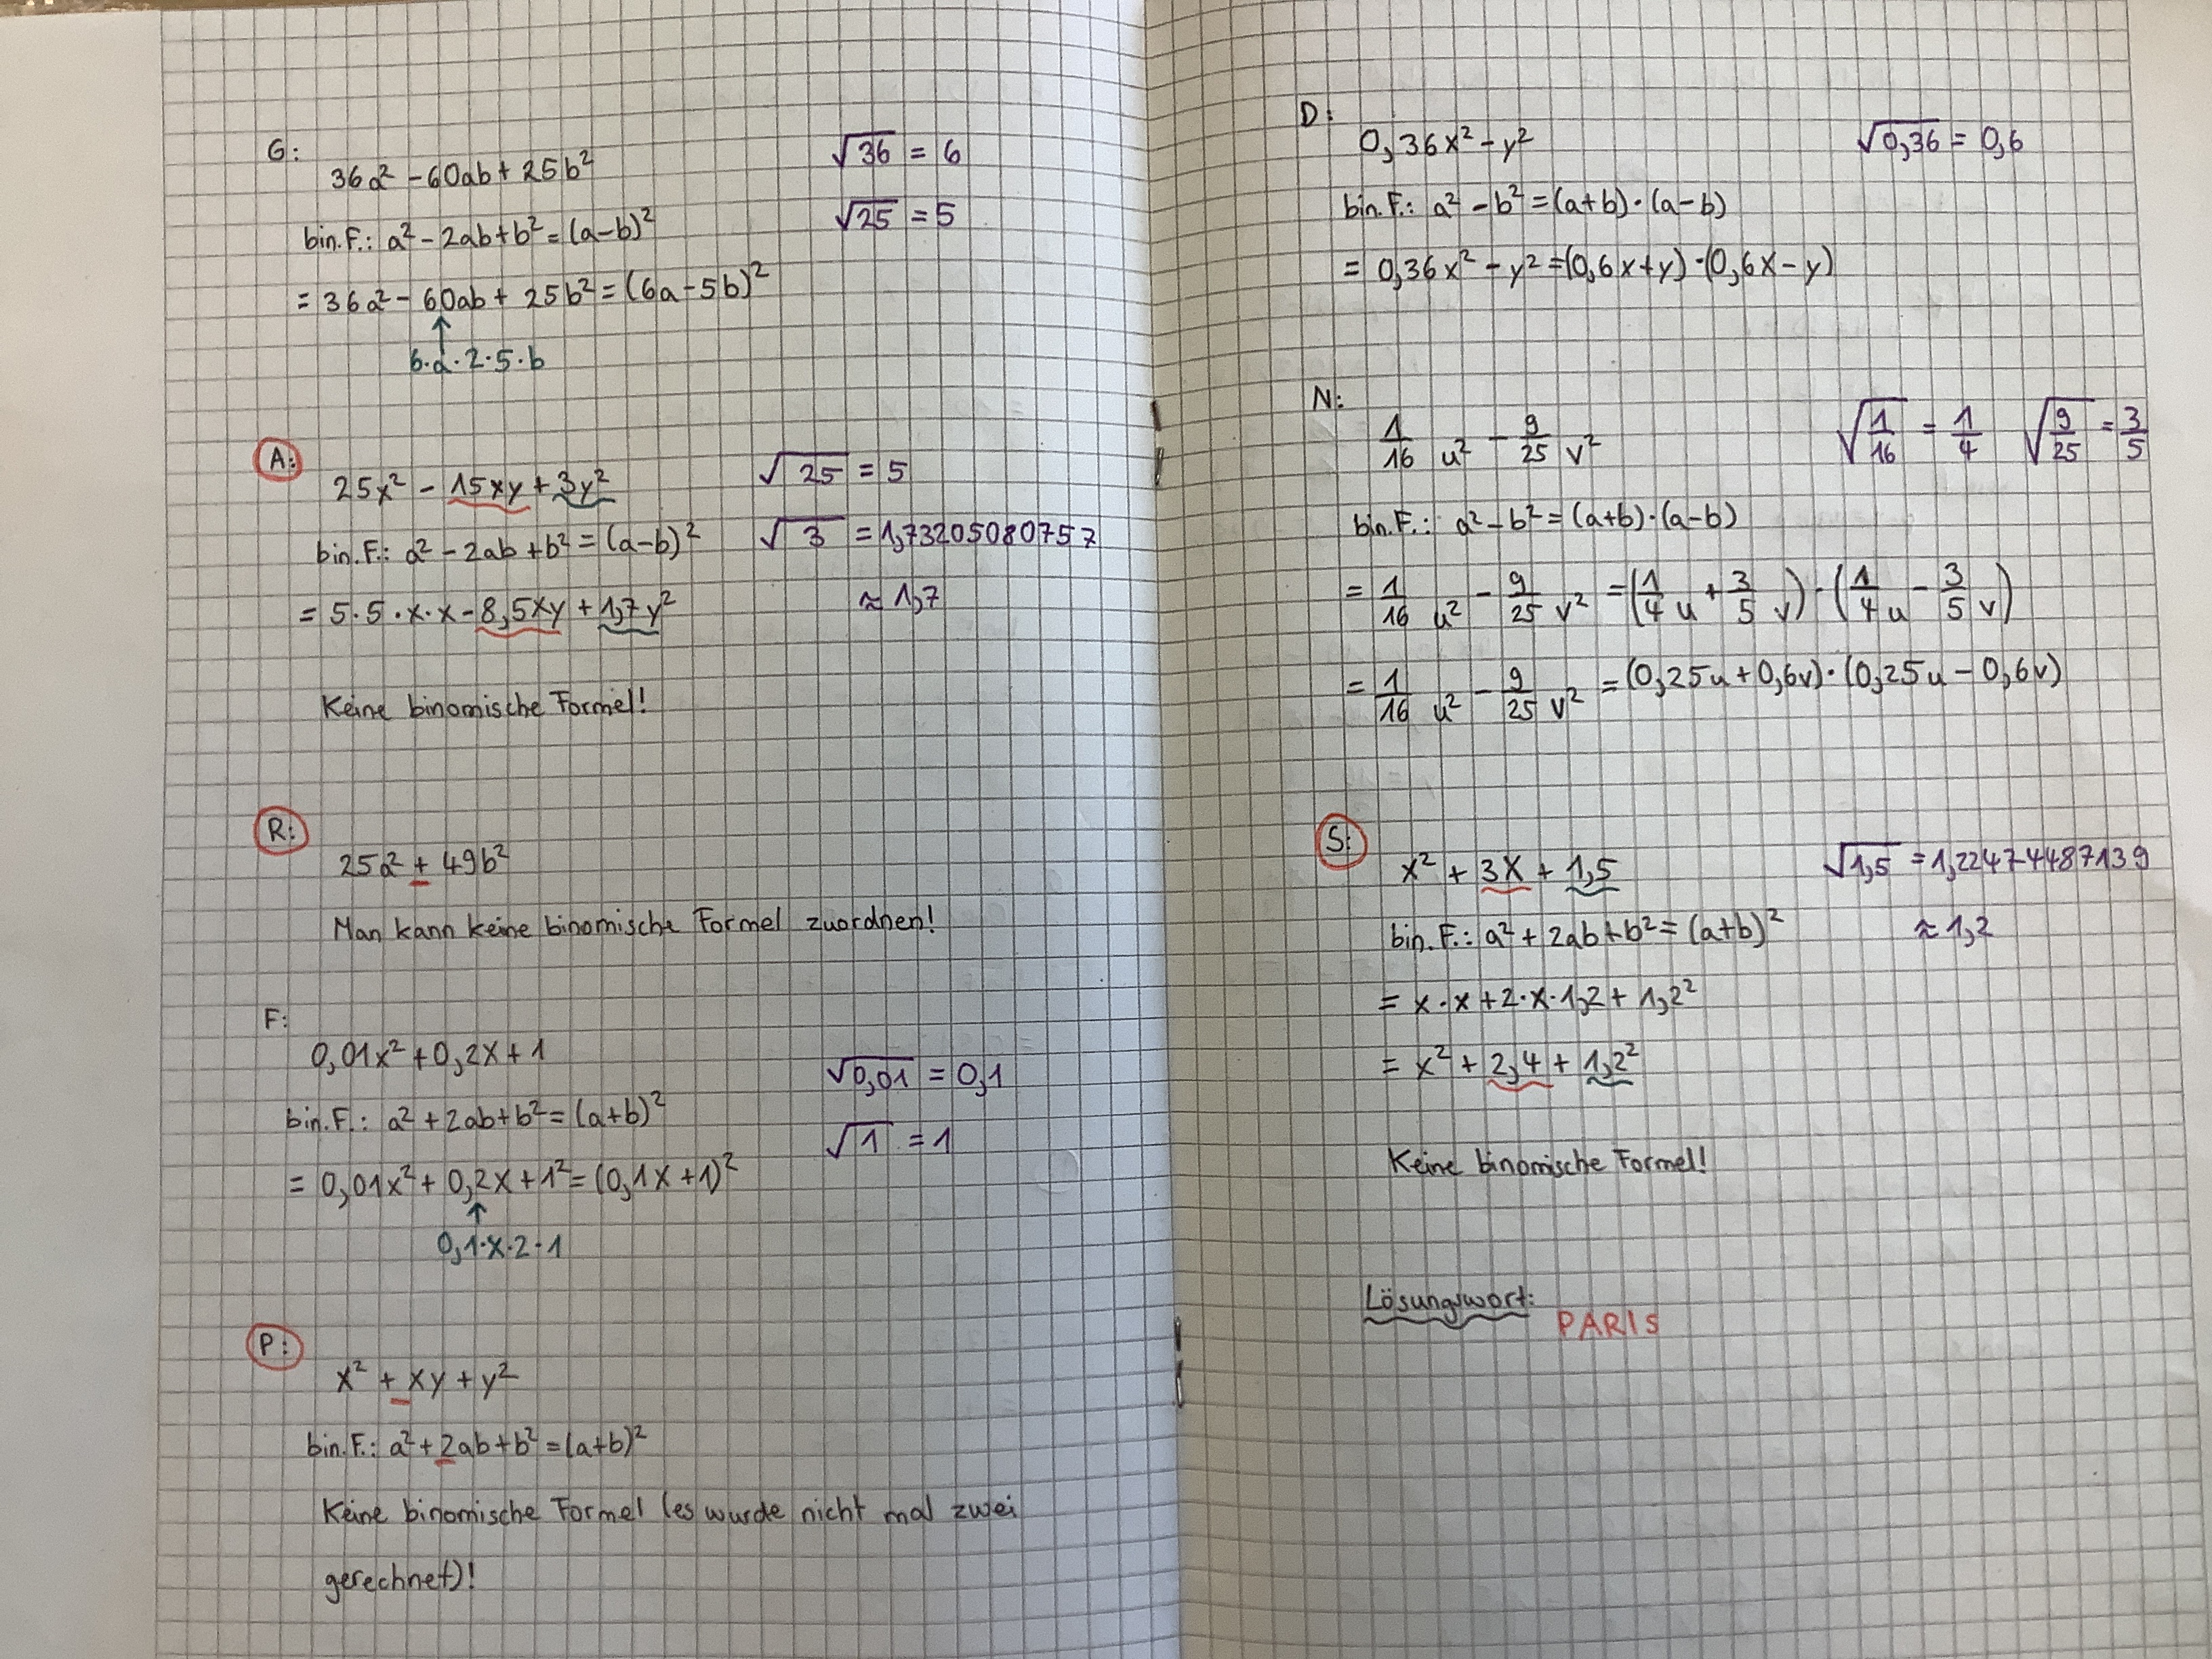 G:
36a² - 60ab + 25b²
√36 = 6
bin.F.: a² - 2ab + b² = (a-b)²
√25 = 5
= 36a² - 60ab + 25b² = (6a-5b)²
↑
6·a·2·5·b
A:
25x² - 15xy + 3y²
√25 = 5
bin.F.: a² - 2ab + b² = (a-b)²
√3 = 1,73205080757
= 5·5·x·x - 8,5xy + 1,7y²
≈ 1,7
Keine binomische Formel!
R:
25a² + 49b²
Man kann keine binomische Formel zuordnen!
F:
0,01x² + 0,2x + 1
√0,01 = 0,1
bin.F.: a² + 2ab + b² = (a+b)²
√1 = 1
= 0,01x² + 0,2x + 1² = (0,1x + 1)²
↑
0,1·x·2·1
P:
x² + xy + y²
bin.F.: a² + 2ab + b² = (a+b)²
Keine binomische Formel (es wurde nicht mal zwei
gerechnet)!
D:
0,36x² - y²
√0,36 = 0,6
bin.F.: a² - b² = (a+b)·(a-b)
= 0,36x² - y² = (0,6x+y)·(0,6x-y)
N:
1/16 u² - 9/25 v²
√1/16 = 1/4 √9/25 = 3/5
bin.F.: a² - b² = (a+b)·(a-b)
= 1/16 u² - 9/25 v² = (1/4 u + 3/5 v)·(1/4 u - 3/5 v)
= 1/16 u² - 9/25 v² = (0,25u + 0,6v)·(0,25u - 0,6v)
S:
x² + 3x + 1,5
√1,5 = 1,224744487139
bin.F.: a² + 2ab + b² = (a+b)²
≈ 1,2
= x·x + 2·x·1,2 + 1,2²
= x² + 2,4 + 1,2²
Keine binomische Formel!
Lösungswort:
PARIS